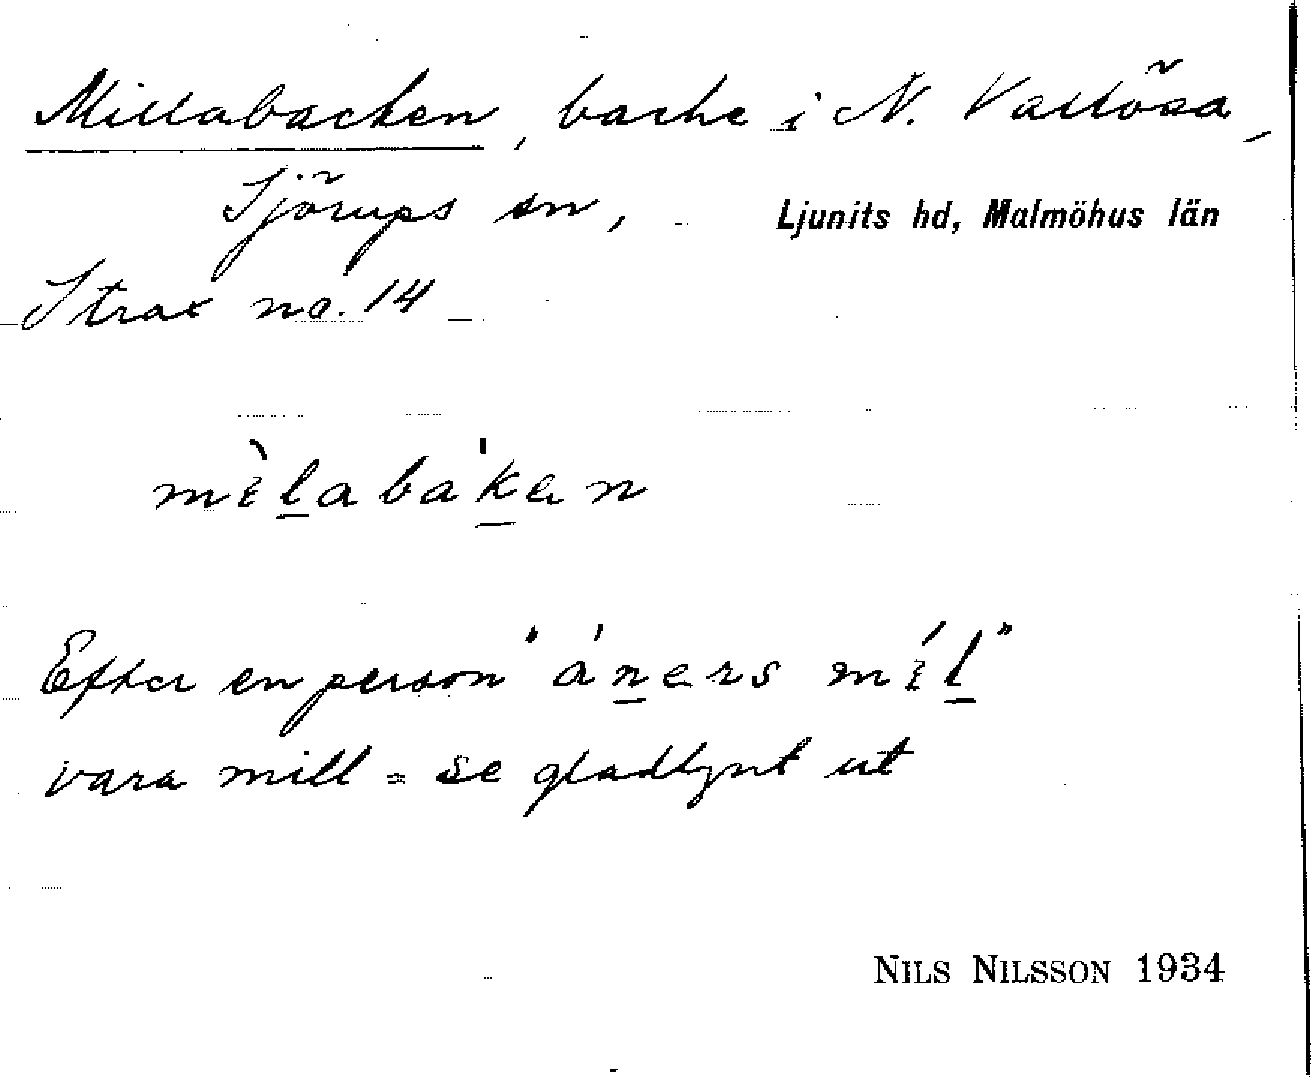 Millabacken, backe i N. Vallösa,
Sjörups sn, Ljunits hd, Malmöhus län
Strax no. 14
mèlabàkan
Efter en person "áners mél"
vara mill = se gladlynt ut
NILS NILSSON 1934